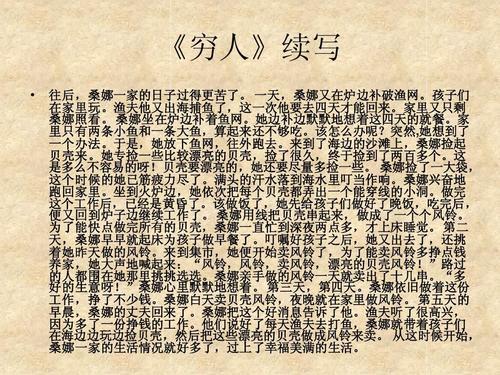 《穷人》续写
• 往后，桑娜一家的日子过得更苦了。一天，桑娜又在炉边补破渔网。孩子们
在家里玩。渔夫他又出海捕鱼了，这一次他要去四天才能回来。家里又只剩
桑娜照看。桑娜坐在炉边补着鱼网。她边补边默默地想着这四天的就餐。家
里只有两条小鱼和一条大鱼，算起来还不够吃。该怎么办呢？突然,她想到了
一个办法。于是，她放下鱼网，往外跑去。来到了海边的沙滩上，桑娜捡起
贝壳来。她专捡一些比较漂亮的贝壳，捡了很久，终于捡到了两百多个。这
是多么不容易的呀！贝壳要漂亮的，她还要尽量多捡一些。桑娜捡了一大袋，
这个时候的她已筋疲力尽了。满头的汗水落到海水里叮当作响。桑娜兴奋地
跑回家里。坐到火炉边，她依次把每个贝壳都弄出一个能穿线的小洞。做完
这个工作后，已经是黄昏了。该做饭了，她先给孩子们做好了晚饭，吃完后，
便又回到炉子边继续工作了。桑娜用线把贝壳串起来，做成了一个个风铃。
为了能快点做完所有的贝壳，桑娜一直忙到深夜两点多，才上床睡觉。第二
天，桑娜早早就起床为孩子做早餐了。叮嘱好孩子之后，她又出去了，还挑
着她昨天做的风铃。来到集市，她便开始卖风铃了。为了能卖风铃多挣点钱
养家，她大声地喊起来：“风铃，风铃，卖风铃，漂亮的贝壳风铃！”路过
的人都围在她那里挑挑选选。桑娜亲手做的风铃一天就卖出了十几串。“多
好的生意呀！”桑娜心里默默地想着。第三天，第四天。桑娜依旧做着这份
工作，挣了不少钱。桑娜白天卖贝壳风铃，夜晚就在家里做风铃。第五天的
早晨，桑娜的丈夫回来了。桑娜把这个好消息告诉了他。渔夫听了很高兴，
因为多了一份挣钱的工作。他们说好了每天渔夫去打鱼，桑娜就带着孩子们
在海边边玩边捡贝壳，然后把这些漂亮的贝壳做成风铃来卖。从这时候开始，
桑娜一家的生活情况就好多了，过上了幸福美满的生活。